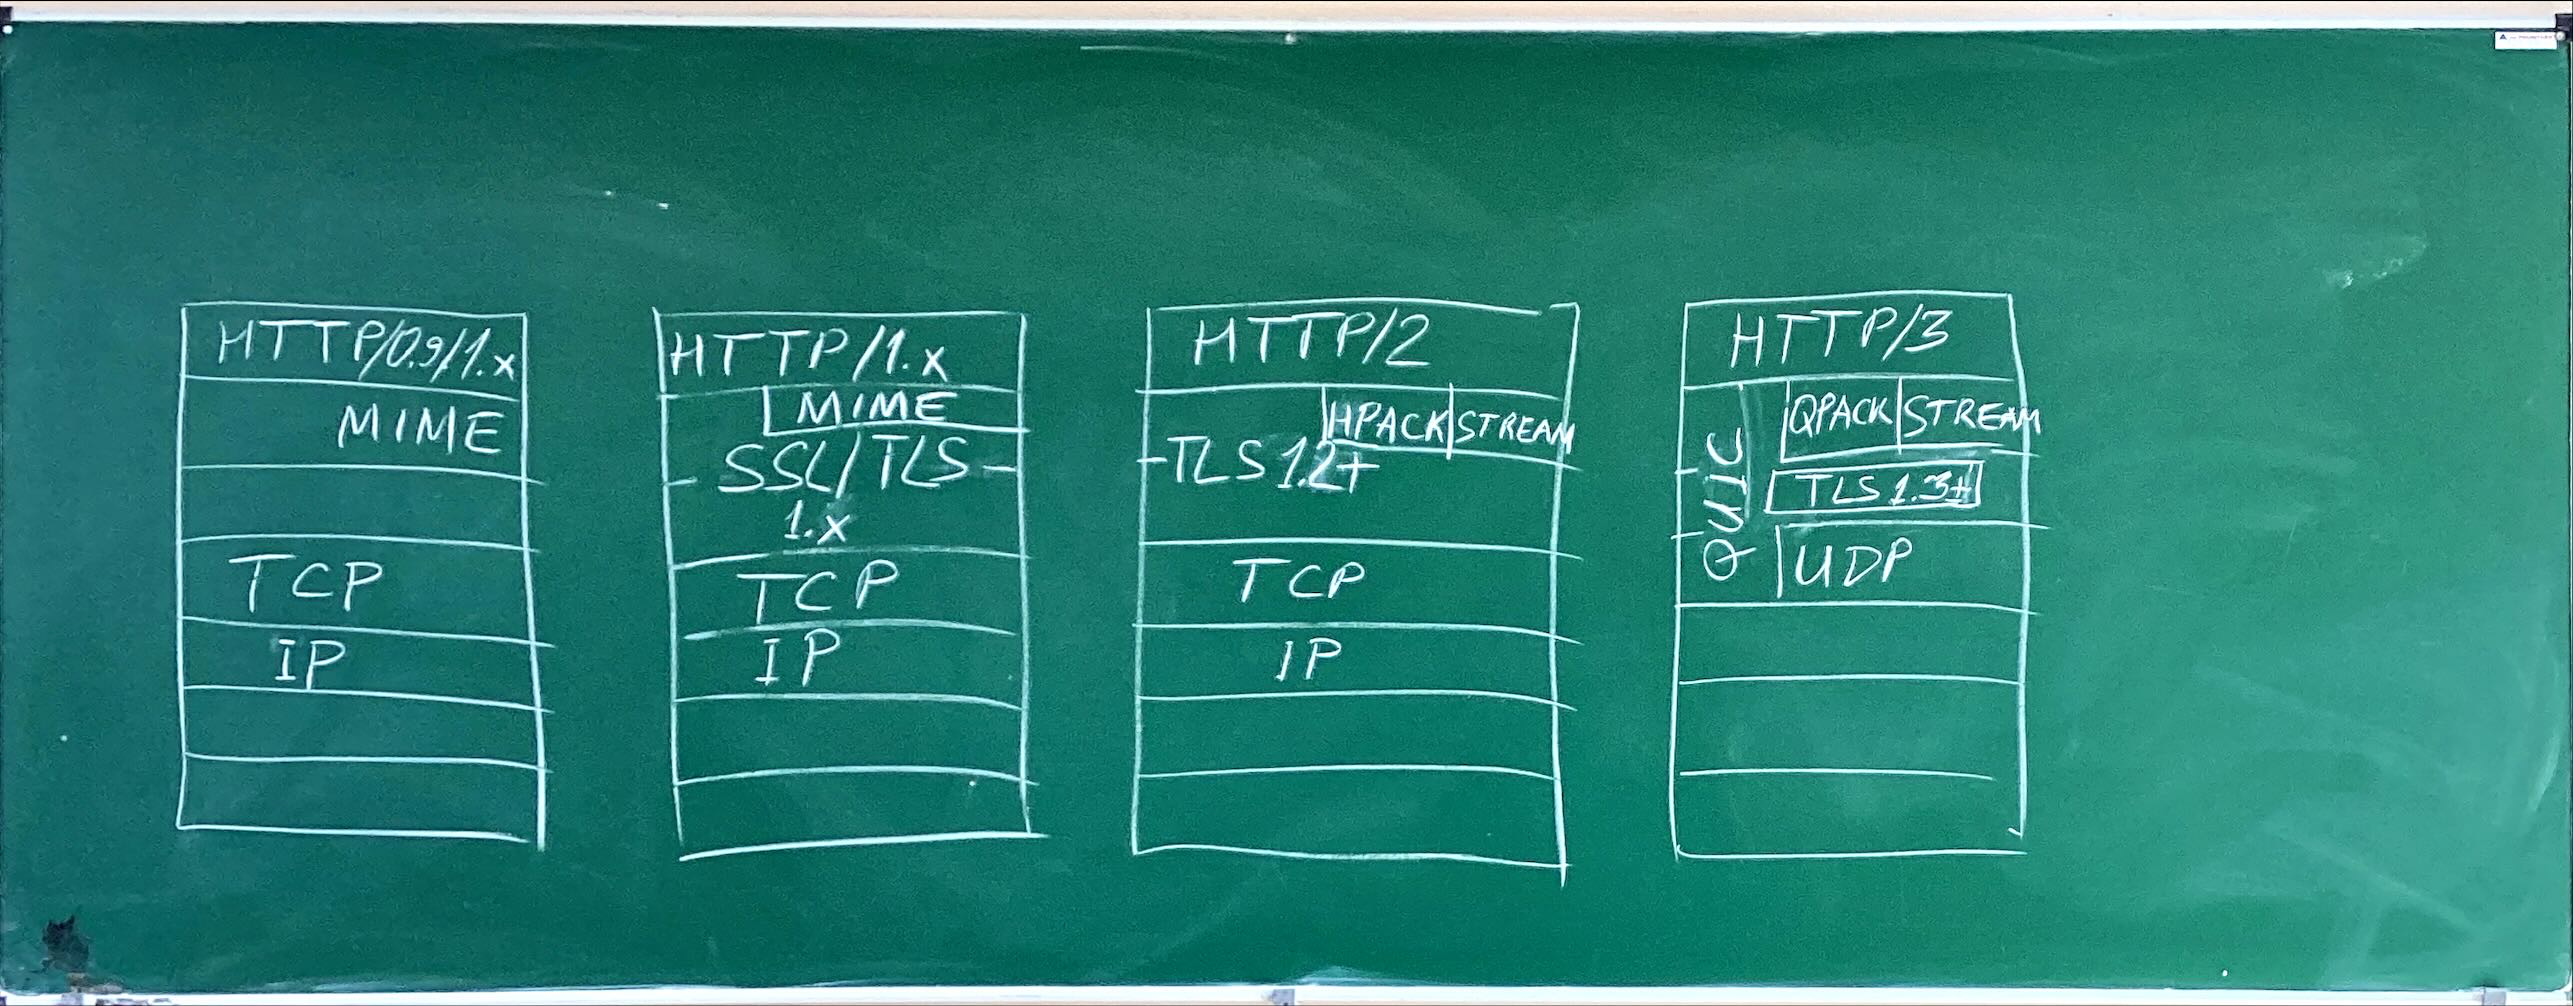 HTTP/0.9/1.x
MIME
TCP
IP
HTTP/1.x
MIME
SSL/TLS
1.x
TCP
IP
HTTP/2
HPACK STREAM
TLS 1.2+
TCP
IP
HTTP/3
QUIC
QPACK STREAM
TLS 1.3+
UDP